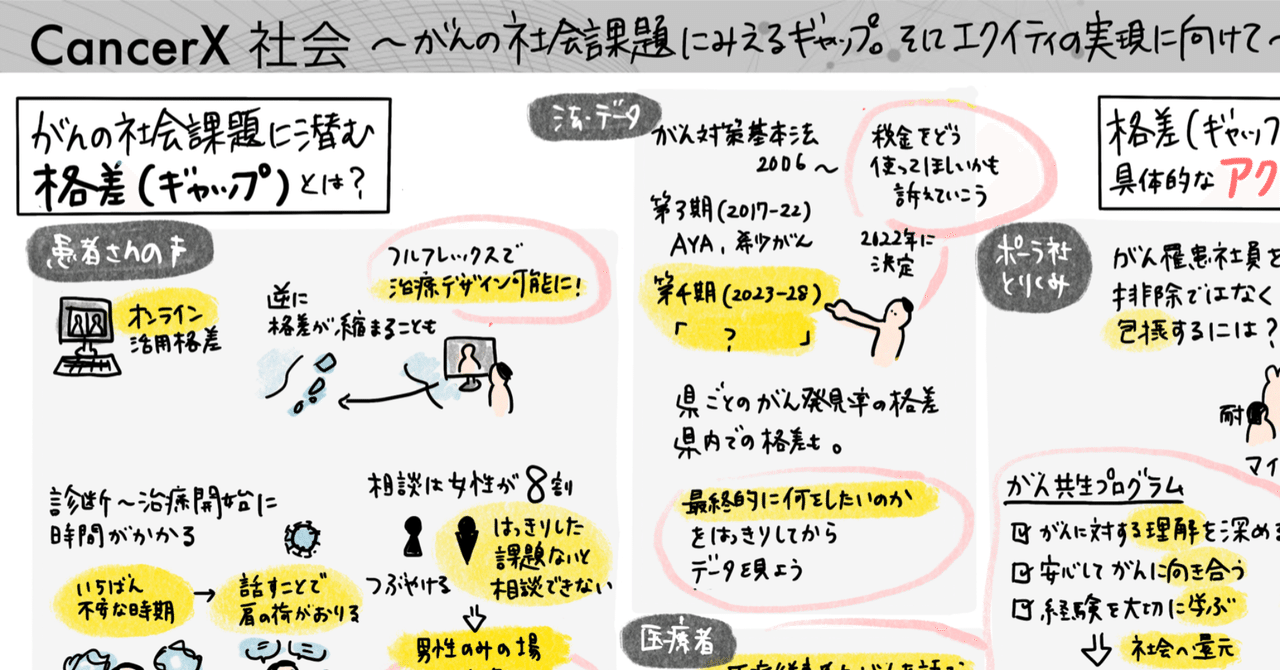 CancerX 社会 ～がんの社会課題にみえるギャップ。そしてエクイティの実現に向けて～
がんの社会課題に潜む
格差(ギャップ)とは？
患者さんの声
オンライン
活用格差
逆に
格差が縮まることも
フルフレックスで
治療デザイン可能に！
診断～治療開始に
時間がかかる
いちばん
不安な時期
→
話すことで
肩の荷がおりる
相談は女性が8割
つぶやける
はっきりした
課題ないと
相談できない
男性のみの場
法・データ
がん対策基本法
2006～
税金をどう
使ってほしいかも
訴えていこう
第3期(2017-22)
AYA、希少がん
2022年に
決定
第4期(2023-28)
「 ？ 」
県ごとのがん発見率の格差
県内での格差も。
最終的に何をしたいのか
をはっきりしてから
データを見よう
医療者
格差(ギャップ
具体的なアク
ポーラ社
とりくみ
がん罹患社員を
排除ではなく
包摂するには？
耐
マイ
がん共生プログラム
がんに対する理解を深める
安心してがんに向き合う
経験を大切に学ぶ
社会へ還元